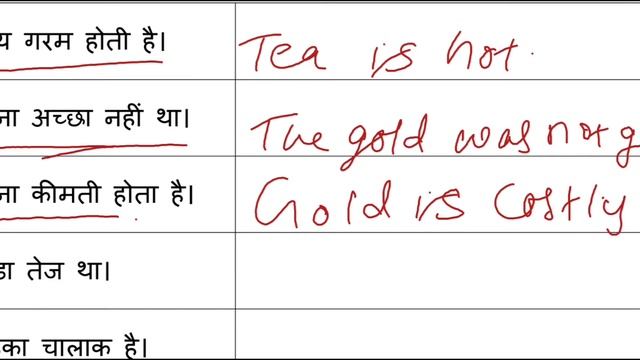 गरम होती है।
Tea is hot.
अच्छा नहीं था।
The gold was not
कीमती होता है।
Gold is Costly
तेज था।
चालाक है।